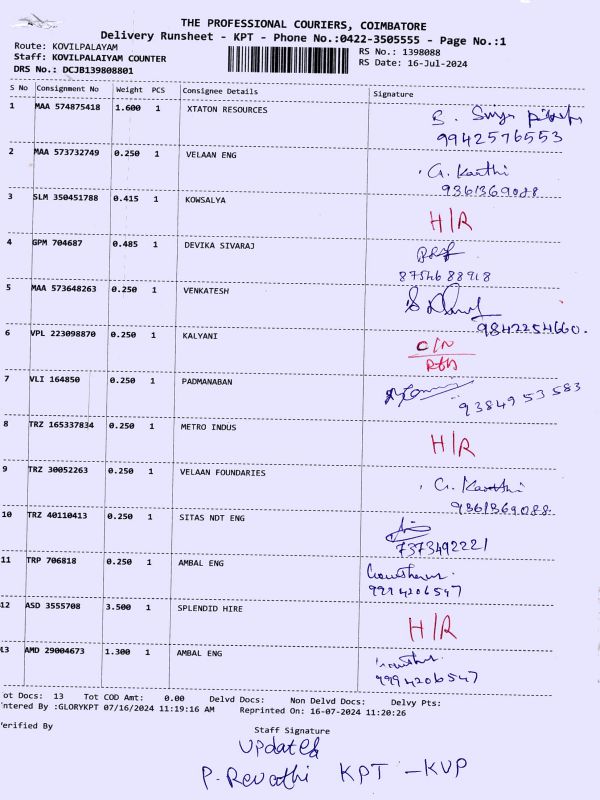 THE PROFESSIONAL COURIERS, COIMBATORE
Delivery Runsheet - KPT - Phone No.:0422-3505555 - Page No.:1
Route: KOVILPALAYAM RS No.: 1398088
Staff: KOVILPALAIYAM COUNTER RS Date: 16-Jul-2024
DRS No.: DCJB139808801
S No Consignment No Weight PCS Consignee Details Signature
1 MAA 574875418 1.600 1 XTATON RESOURCES
9942576553
2 MAA 573732749 0.250 1 VELAAN ENG G. Karthi
9361369088
3 SLM 350451788 0.415 1 KOWSALYA H/R
4 GPM 704687 0.485 1 DEVIKA SIVARAJ
8754688918
5 MAA 573648263 0.250 1 VENKATESH
9842254660.
6 VPL 223098870 0.250 1 KALYANI C/N
7 VLI 164850 0.250 1 PADMANABAN
9384953583
8 TRZ 165337834 0.250 1 METRO INDUS H/R
9 TRZ 30052263 0.250 1 VELAAN FOUNDARIES G. Karthi
9361369088
10 TRZ 40110413 0.250 1 SITAS NDT ENG
7373492221
11 TRP 706818 0.250 1 AMBAL ENG
9994206547
12 ASD 3555708 3.500 1 SPLENDID HIRE H/R
13 AMD 29004673 1.300 1 AMBAL ENG
9994206547
ot Docs: 13 Tot COD Amt: 0.00 Delvd Docs: Non Delvd Docs: Delvy Pts:
ntered By :GLORYKPT 07/16/2024 11:19:16 AM Reprinted On: 16-07-2024 11:20:26
erified By Staff Signature
Updated
P. Revathi KPT - KVP